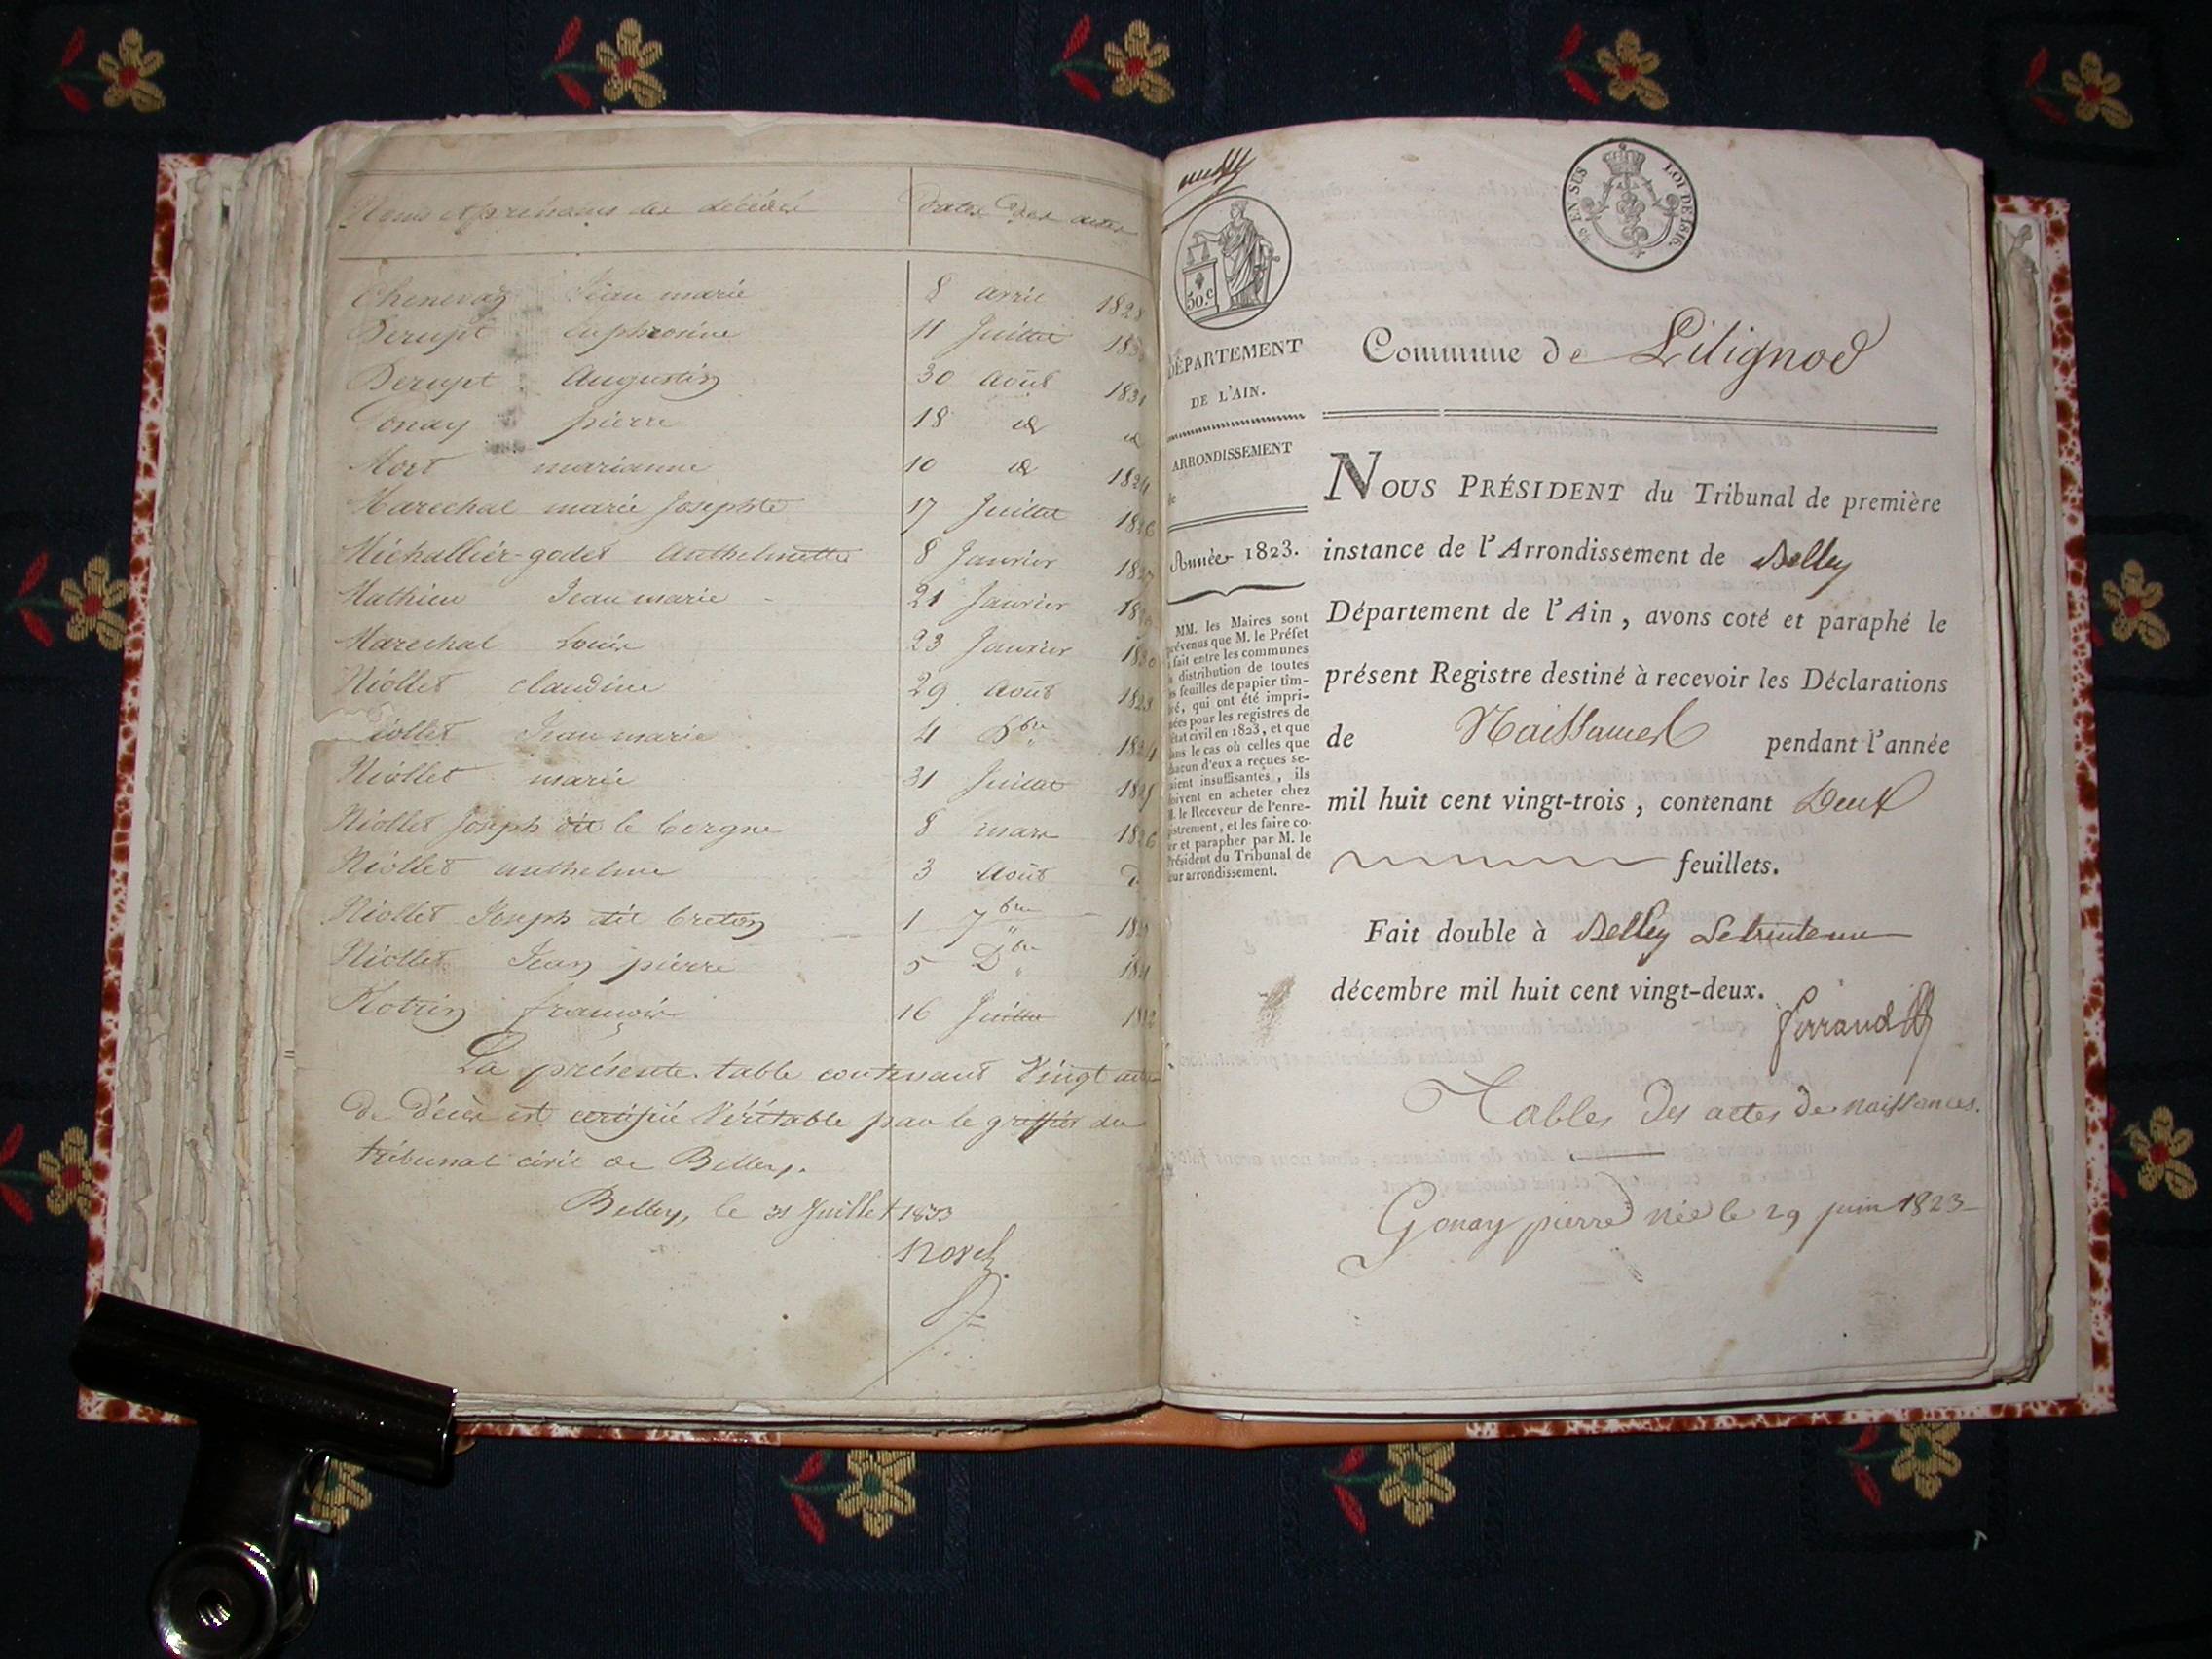 Noms et prénoms des décédés Dates des actes
Chenevaz Jean marie 8 avril 1828
Berupt Euphrosine 11 Juillet
Berupt Augustin 30 Août 1831
Gonay pierre 18 id id
Mort marianne 10 id 1824
Marechal marie Josephte 17 Juillet 1826
Michallier-godet Anthelmette 8 Janvier
Mathieu Jean marie 21 Janvier
Marechal Louis 23 Janvier 1830
Niollet Claudine 29 Août 1823
Niollet Jean marie 4 1824
Niollet marie 31 Juillet 1825
Niollet Joseph dit le borgne 8 mars 1826
Niollet anthelme 3 Août
Niollet Joseph dit breton 1 7bre
Niollet Jean pierre 5 Dbre
françois 16 Juillet
La présente table contenant Vingt actes
de Décès est certifiée Véritable par le greffier du
tribunal civil de Belley.
Belley, le 31 Juillet 1833
50.c
EN SUS LOI DE 1816.
DÉPARTEMENT
DE L'AIN.
ARRONDISSEMENT
de
Année 1823.
MM. les Maires sont
prévenus que M. le Préfet
a fait entre les communes
la distribution de toutes
les feuilles de papier tim-
bré, qui ont été impri-
mées pour les registres de
l'état civil en 1823, et que
dans le cas où celles que
chacun d'eux a reçues se-
raient insuffisantes, ils
doivent en acheter chez
M. le Receveur de l'enre-
gistrement, et les faire co-
ter et parapher par M. le
Président du Tribunal de
leur arrondissement.
Commune de Lilignod
NOUS PRÉSIDENT du Tribunal de première
instance de l'Arrondissement de Belley
Département de l'Ain, avons coté et paraphé le
présent Registre destiné à recevoir les Déclarations
de Naissances pendant l'année
mil huit cent vingt-trois, contenant Deux
feuillets.
Fait double à Belley Le trente un
décembre mil huit cent vingt-deux.
Ferrand
Tables Des actes de naissances.
Gonay pierre née le 29 juin 1823